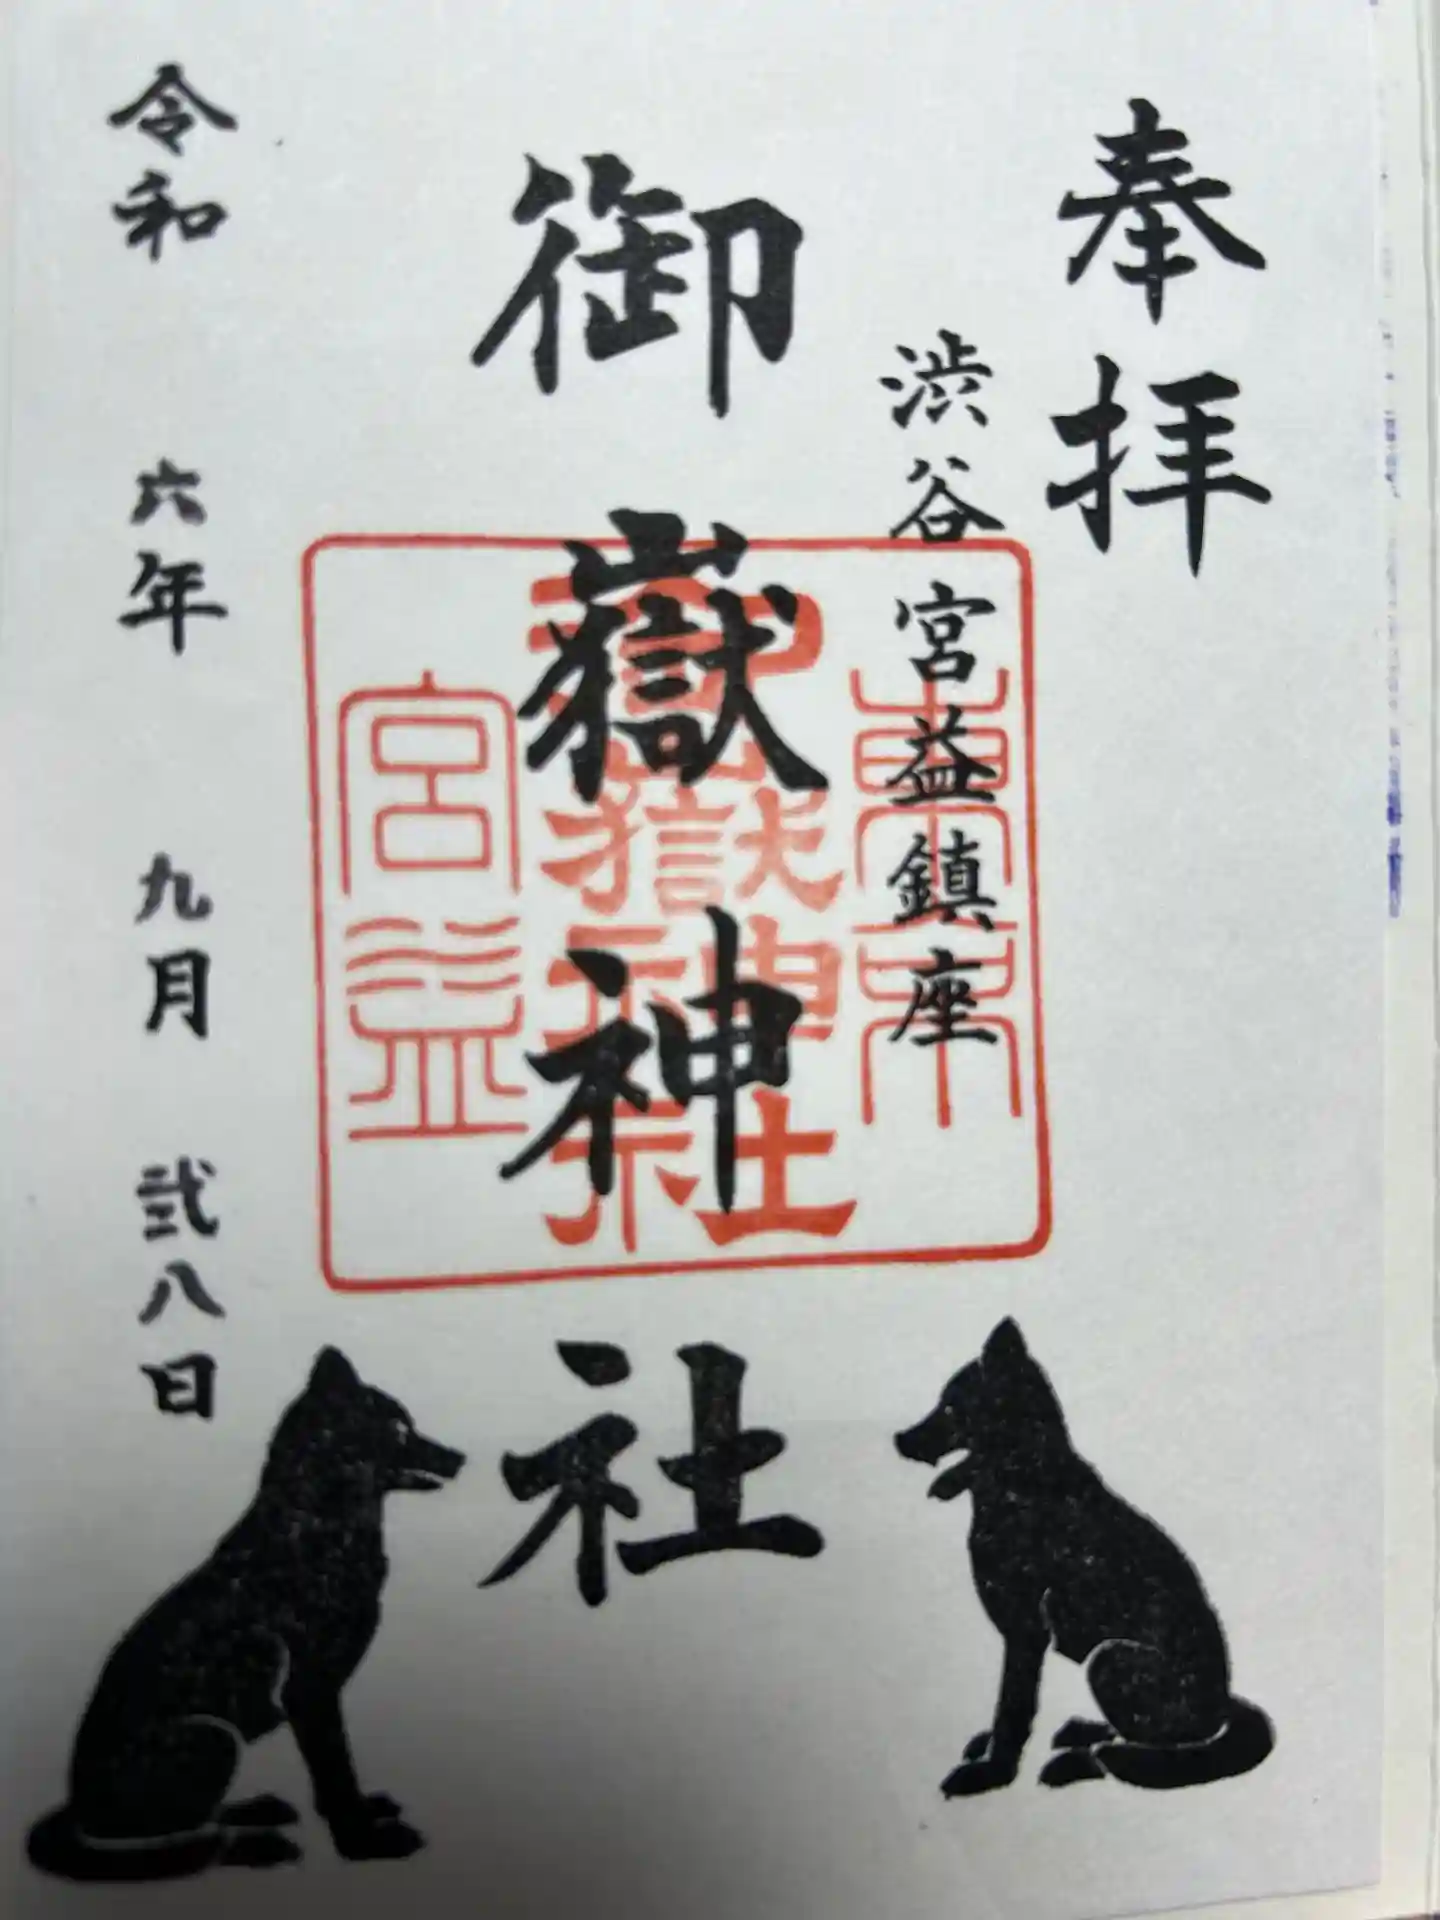 奉拝
渋谷宮益鎮座
御嶽神社
東京
御嶽神社
宮益
令和 六年 九月 弐八日